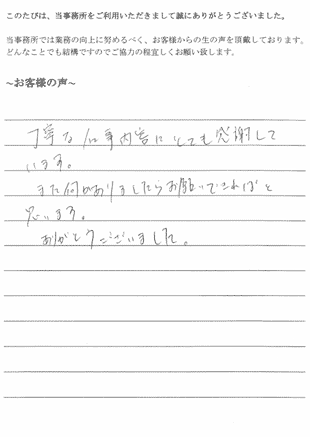 このたびは、当事務所をご利用いただきまして誠にありがとうございました。
当事務所では業務の向上に努めるべく、お客様からの生の声を頂戴しております。
どんなことでも結構ですのでご協力の程宜しくお願い致します。
~お客様の声~
丁寧な仕事内容にとても感謝して
います。
また何かありましたらお願いできればと
思います。
ありがとうございました。